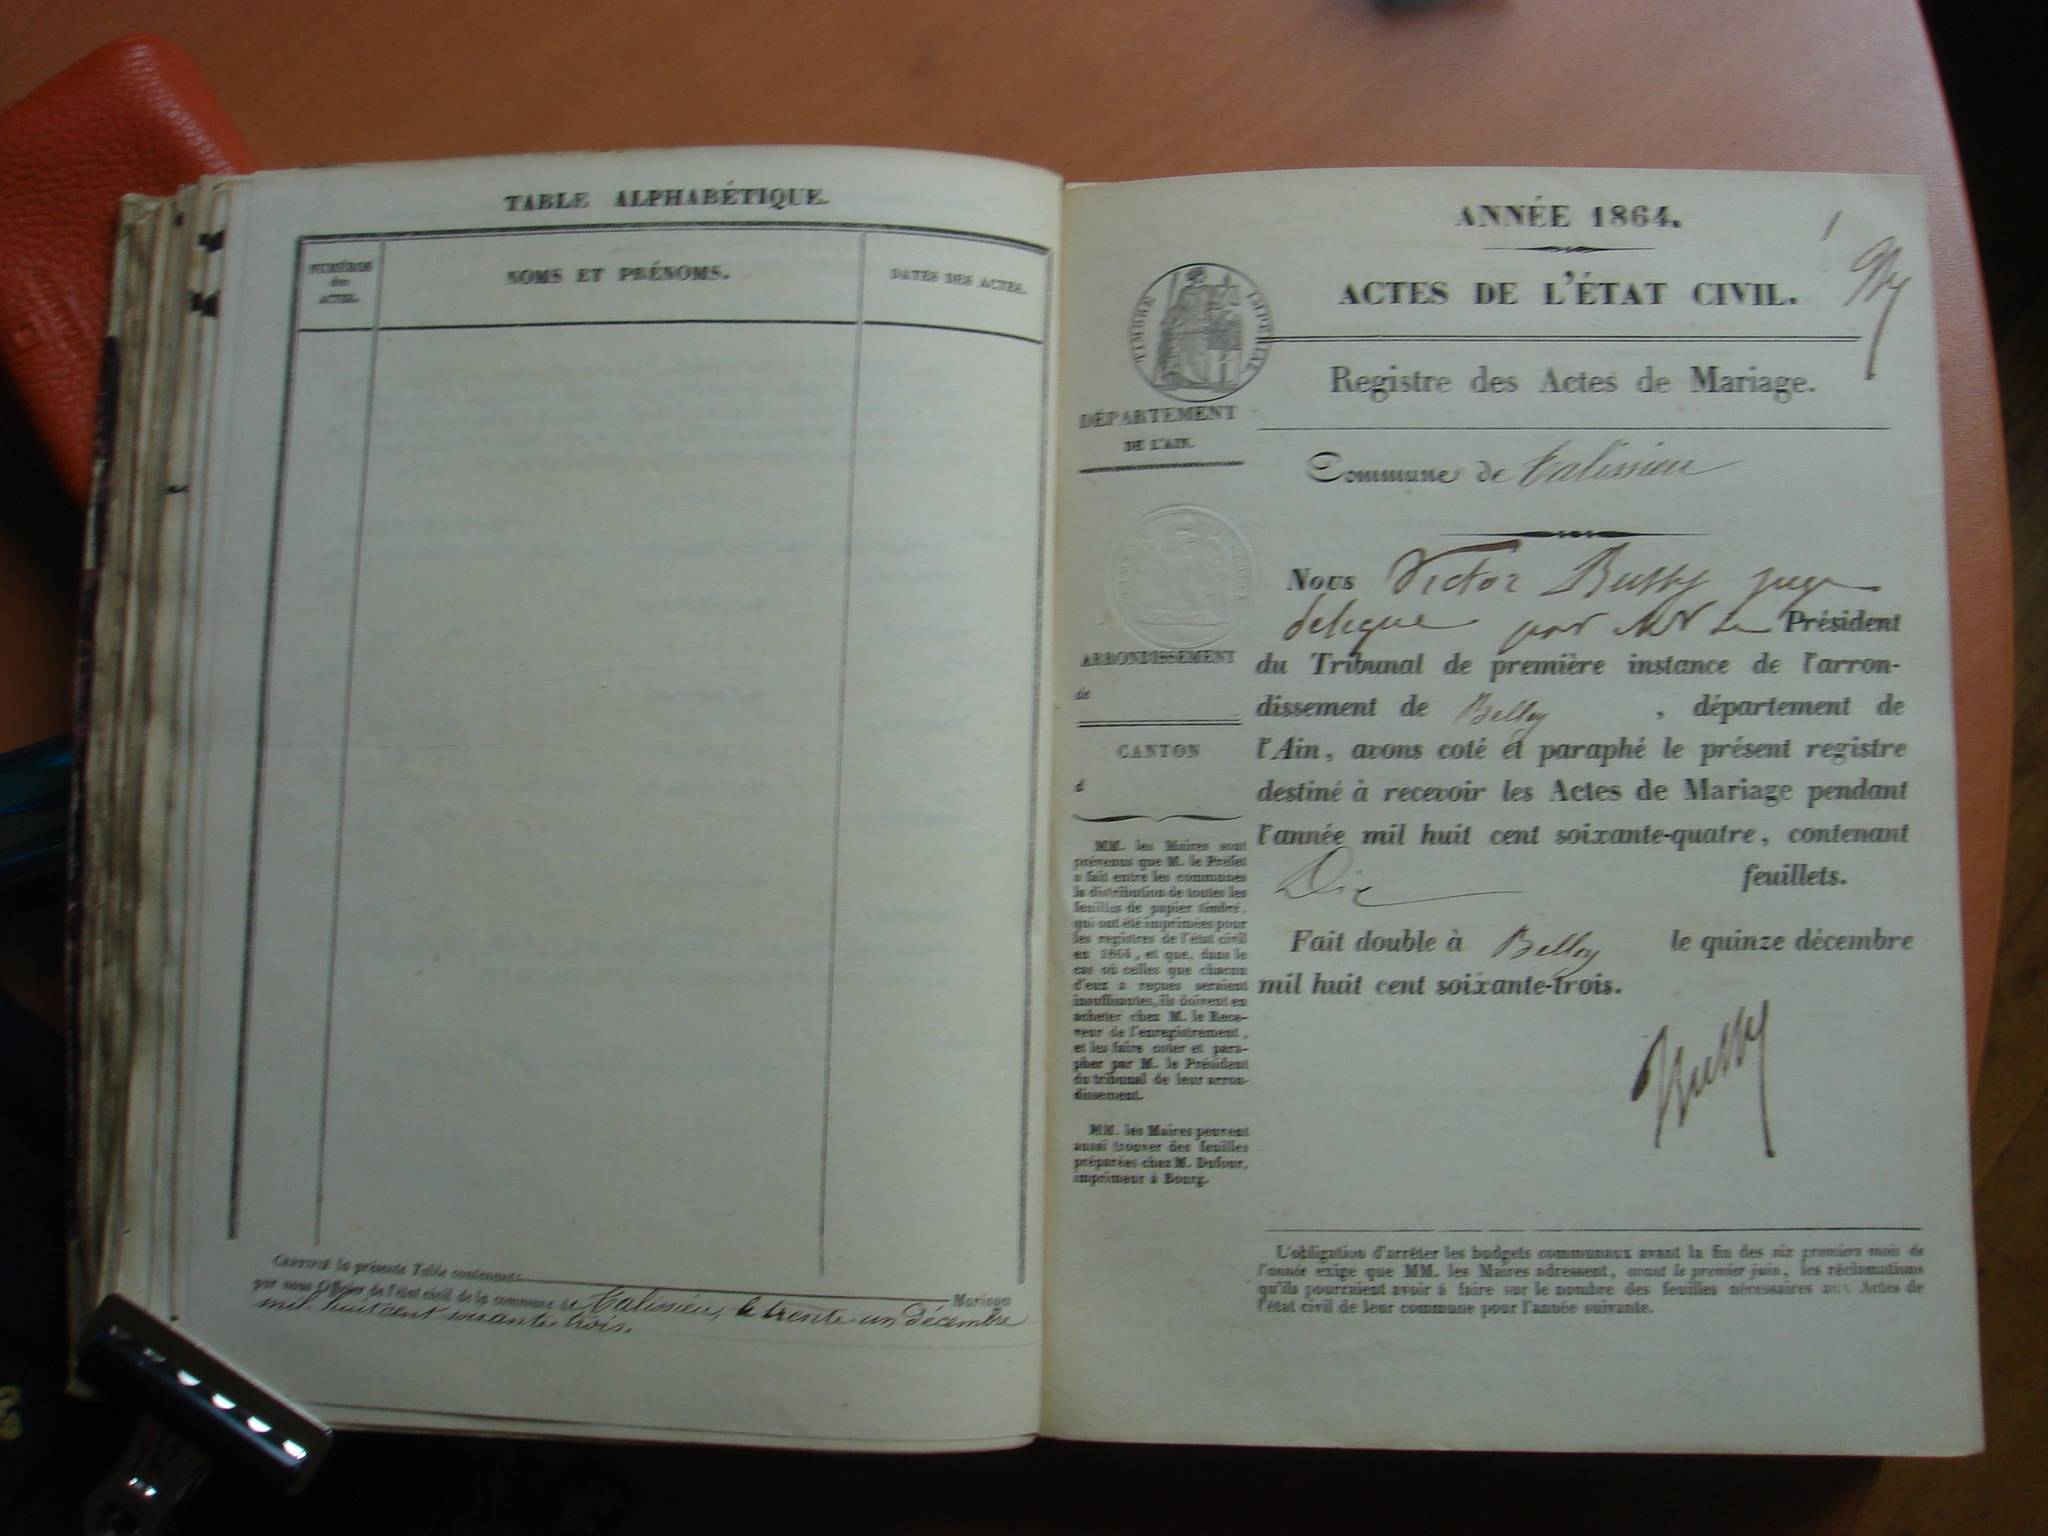 TABLE ALPHABÉTIQUE.
NUMÉROS
des
ACTES.
NOMS ET PRÉNOMS.
DATES DES ACTES.
CERTIFIÉ la présente Table contenant
Mariages
par nous Officier de l'état civil de la commune de Talissieu, le trente-un décembre
mil huit cent soixante trois.
ANNÉE 1864.
1
ACTES DE L'ÉTAT CIVIL.
TIMBRE IMPÉRIAL
Registre des Actes de Mariage.
DÉPARTEMENT
DE L'AIN.
Commune de Talissieu
ARRONDISSEMENT
de
CANTON
d
MM. les Maires sont
prévenus que M. le Préfet
a fait entre les communes
la distribution de toutes les
feuilles de papier timbré,
qui ont été imprimées pour
les registres de l'état civil
en 1864, et que, dans le
cas où celles que chacun
d'eux a reçues seraient
insuffisantes, ils doivent en
acheter chez M. le Rece-
veur de l'enregistrement,
et les faire coter et para-
pher par M. le Président
du tribunal de leur arron-
dissement.
MM. les Maires peuvent
aussi trouver des feuilles
préparées chez M. Dufour,
imprimeur à Bourg.
Nous Victor Bussy juge
delegue par Mr Le Président
du Tribunal de première instance de l'arron-
dissement de Belley , département de
l'Ain, avons coté et paraphé le présent registre
destiné à recevoir les Actes de Mariage pendant
l'année mil huit cent soixante-quatre, contenant
Dix feuillets.
Fait double à Belley le quinze décembre
mil huit cent soixante-trois.
Bussy
L'obligation d'arrêter les budgets communaux avant la fin des six premiers mois de
l'année exige que MM. les Maires adressent, avant le premier juin, les réclamations
qu'ils pourraient avoir à faire sur le nombre des feuilles nécessaires aux Actes de
l'état civil de leur commune pour l'année suivante.